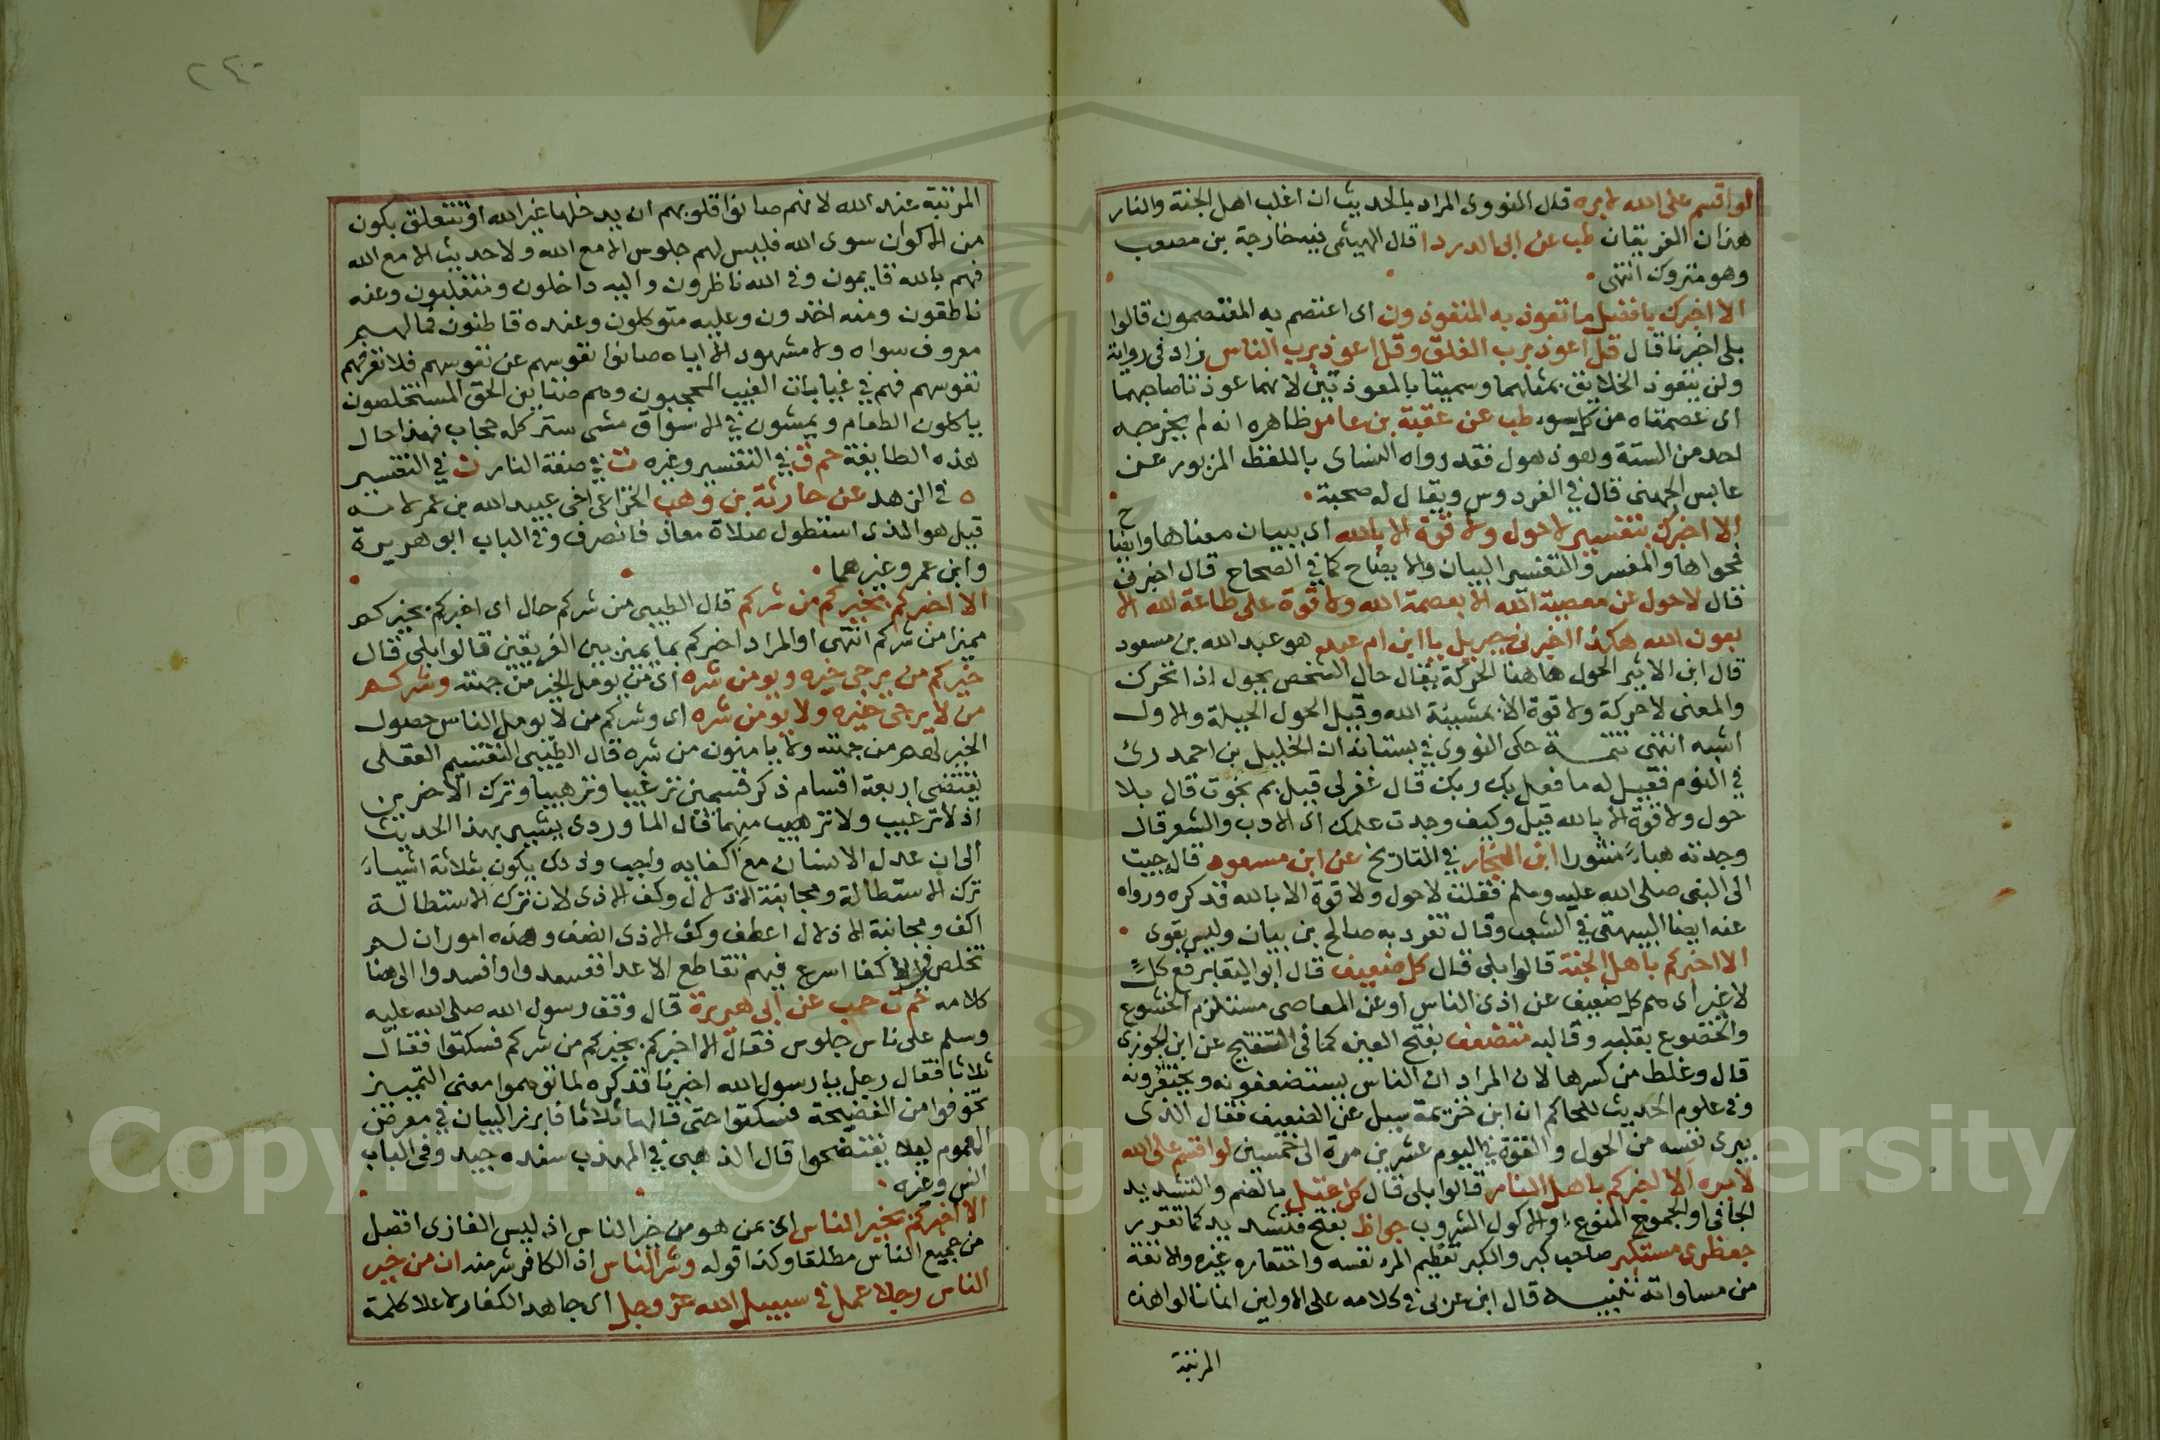 لو اقسم على الله لابره قال النووى المراد بالحديث ان اغلب اهل الجنة والنار
هذان الفريقان طب عن ابى الدردا قال الهيثمى فيه خارجة بن مصعب
وهو متروك انتهى
الا اخبرك بافضل ما تعوذ به المتعوذون اى اعتصم به المعتصمون قالوا
بلى اخبرنا قال قل اعوذ برب الفلق وقل اعوذ برب الناس زاد فى رواية
ولن يتعوذ الخلايق بمثلهما وسميتا بالمعوذتين لانهما عوذتا صاحبهما
اى عصمتاه من كل سو طب عن عقبة بن عامر ظاهره انه لم يخرجه
احد من الستة وهو ذهول فقد رواه النساى باللفظ المزبور عن
عابس الجهنى قال فى الفردوس ويقال له صحبة
الا اخبرك بتفسير لا حول ولا قوة الا بالله اى ببيان معناها وايضا
فحواها والمفسر والتفسير البيان والايضاح كما فى الصحاح قال اخبرنى
قال لا حول عن معصية الله الا بعصمة الله ولا قوة على طاعة الله الا
بعون الله هكذا اخبرنى جبريل يا ابن ام عبد هو عبد الله بن مسعود
قال ابن الاثير الحول هاهنا الحركة يقال حال الشخص يحول اذا تحرك
والمعنى لا حركة ولا قوة الا بمشيئة الله وقيل الحول الحيلة والاول
اشبه انتهى تتمة حكى النووى فى بستانه ان الخليل بن احمد رئ
فى النوم فقيل له ما فعل بك ربك قال غفر لى قيل بم نجوت قال بلا
حول ولا قوة الا بالله قيل وكيف وجدت علمك اى الادب والشعر قال
وجدته هباء منثورا ابن النجار فى التاريخ عن ابن مسعود قال جيت
الى النبى صلى الله عليه وسلم فقلت لا حول ولا قوة الا بالله فذكره ورواه
عنه ايضا البيهقى فى الشعب وقال تفرد به صالح بن بيان وليس بقوى
الا اخبركم باهل الجنة قالوا بلى قال كل ضعيف قال ابو البقا برفع كل
لا غير اى هم كل ضعيف عن اذى الناس او عن المعاصى مستلزم الخشوع
والخضوع بقلبه وقالبه متضعف بفتح العين كما فى التنقيح عن ابن الجوزى
قال وغلط من كسرها لان المراد ان الناس يستضعفونه ويحتقرونه
وفى علوم الحديث للحاكم ان ابن خزيمة سيل عن الضعيف فقال الذى
يبرى نفسه من الحول والقوة فى اليوم عشرين مرة الى خمسين لو اقسم على الله
لابره الا اخبركم باهل النار قالوا بلى قال كل عتل بالضم والتشديد
الجافى او الجموع المنوع او الاكول الشروب جواظ بفتح فتشديد كما تقرر
جعظرى مستكبر صاحب كبر والكبر تعظيم المرء نفسه واحتقاره غيره والانفة
من مساواته تنبيه قال ابن عربى فى كلامه على الاولين انما نالوا هذه
المرتبة
المرتبة عند الله لانهم صانوا قلوبهم ان يدخلها غير الله او تتعلق بكون
من الاكوان سوى الله فليس لهم جلوس الا مع الله ولا حديث الا مع الله
فهم بالله قايمون وفى الله ناظرون واليه داخلون ومنقلبون وعنه
ناطقون ومنه اخذون وعليه متوكلون وعنده قاطنون فما لهم
معروف سواه ولا مشهود الا اياه صانوا نفوسهم عن نفوسهم فلا تعرفهم
نفوسهم فهم فى غيابات الغيب المحجبون وهم ضنائن الحق المستخلصون
ياكلون الطعام ويمشون فى الاسواق مشى ستر كله حجاب فهذا حال
هذه الطايفة حم ق فى التفسير وغيره ت فى صفة النار ن فى التفسير
ه فى الزهد عن حارثة بن وهب الخزاعى اخى عبيد الله بن عمر لامه
قيل هو الذى استطول صلاة معاذ فانصرف وفى الباب ابو هريرة
وابن عمر وغيرهما
الا اخبركم بخيركم من شركم قال الطيبى من شركم حال اى اخبركم بخيركم
مميزا من شركم انتهى او المراد اخبركم بما يميز بين الفريقين قالوا بلى قال
خيركم من يرجى خيره ويومن شره اى من يومل الخير من جهته وشركم
من لا يرجى خيره ولا يومن شره اى وشركم من لا يومل الناس حصول
الخير لهم من جهته ولا يامنون من شره قال الطيبى التقسيم العقلى
يقتضى اربعة اقسام ذكر قسمين ترغيبا وترهيبا وترك الاخرين
اذ لا ترغيب ولا ترهيب منهما قال الماوردى يشير بهذا الحديث
الى ان عدل الانسان مع اكفايه واجب وذلك يكون بثلاثة اشياء
ترك الاستطالة ومجانبة الاذلال وكف الاذى لان ترك الاستطالة
اكف ومجانبة الاذلال اعطف وكف الاذى انصف وهذه امور ان لم
تخلص فى الاكفا اسرع فيهم تقاطع الاعدا ففسدوا وافسدوا الى هنا
كلامه حم ت حب عن ابى هريرة قال وقف رسول الله صلى الله عليه
وسلم على ناس جلوس فقال الا اخبركم بخيركم من شركم فسكتوا فقال
ثلاثا فقال رجل يا رسول الله اخبرنا فذكره لما توهموا معنى التمييز
تخوفوا من الفضيحة فسكتوا حتى قالها ثلاثا فابرز البيان فى معرض
العموم ليلا يفتضحوا قال الذهبى فى المهذب سنده جيد وفى الباب
انس وغيره
الا اخبركم بخير الناس اى بمن هو من خير الناس اذ ليس الغازى افضل
من جميع الناس مطلقا وكذا قوله وشر الناس اذ الكافر شر منه ان من خير
الناس رجلا عمل فى سبيل الله عز وجل اى جاهد الكفار لاعلا كلمة
Copyright © King University